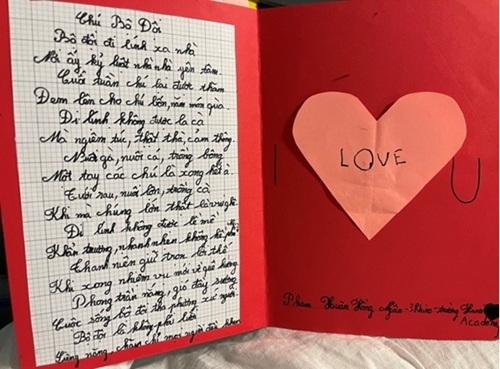 Chú Bộ Đội
Bộ đội đi lính xa nhà
Nơi ấy kỷ luật nhà nhà yên tâm.
Cuối tuần chỉ lại được thăm
Đem lên cho chú lớn, năm món quà.
Đi lính không được la cà
Mà nghiêm túc, thật thà, cảm thông.
Nuôi gà, nuôi cá, trồng bông
Một tay các chú là xong hết à
Tưới rau, nuôi lớn, trồng cà
Khi mà chúng lớn thật là
Đi lính không được lề mề
Khẩn trương, nhanh nhẹn không hề
Thanh niên giữ trọn lời thề
Khi xong nhiệm vụ mới về quê hương
Phong trần nắng gió đầy sương
Cuộc sống bộ đội tha phương xứ người
Bộ đội là không phải lười
Siêng năng, chăm chỉ mọi người
I LOVE U
Phạm Xuân Hồng Ngân - 3 - trường
Academy